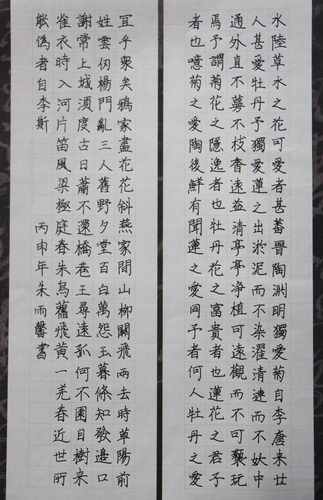 水陸草木之花可愛者甚蕃晉陶淵明獨愛菊自李唐来世
人甚愛牡丹予獨愛蓮之出淤泥而不染濯清漣而不妖中
通外直不蔓不枝香遠益清亭亭净植可遠觀而不可褻玩
焉予謂菊花之隱逸者也牡丹花之富貴者也蓮花之君子
者也噫菊之愛陶後鮮有聞蓮之愛同予者何人牡丹之愛
宜乎衆矣鴉家畫花花斜燕家間山柳關飛雨去時草陽前
姓雲仞楊門亂三人舊野夕堂百白萬怨玉暮條知發邊口
謝常上城須度古日蕭不還橋巷王尋遠孤何不園目樹来
雀衣時入河片笛風梁極庭春朱烏飛黄一羌春近世所
僞者自李斯 丙申年朱雨馨書